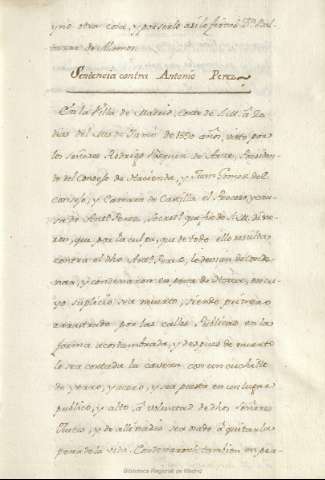 y no otra cosa, y por serlo asi lo firmó Dn. Bal-
tasar de Alamos.
Sentencia contra Antonio Perez
En la Villa de Madrid, Corte de S.M. à
dias del Mes de Junio de 1590 años, visto por
los señores Rodrigo Vazquez de Arze, Presiden-
te del Consejo de Hacienda, y Juan Gomez del
Consejo, y Camara de Castilla el Proceso, y cau-
sa de Antº. Perez, Secretº. que fue de S.M. dixe-
ron, que por la culpa, que de todo ello resulta
contra el dho Antº. Perez, le devian de conde-
nar, y condenaron en pena de Muerte, en cu-
yo suplicio sea muerto, siendo primero
arrastrado por las calles Publicas, en la
forma acostumbrada, y despues de muerto
le sea cortada la caveza con un cuchillo
de yerro, y acero, y sea puesta en un lugar
publico, y alto, à voluntad de dhos. señores
Juezes, y de alli nadie sea osado à quitarla
pena de la vida. Condenaronle tambien en per-
Biblioteca Regional de Madrid